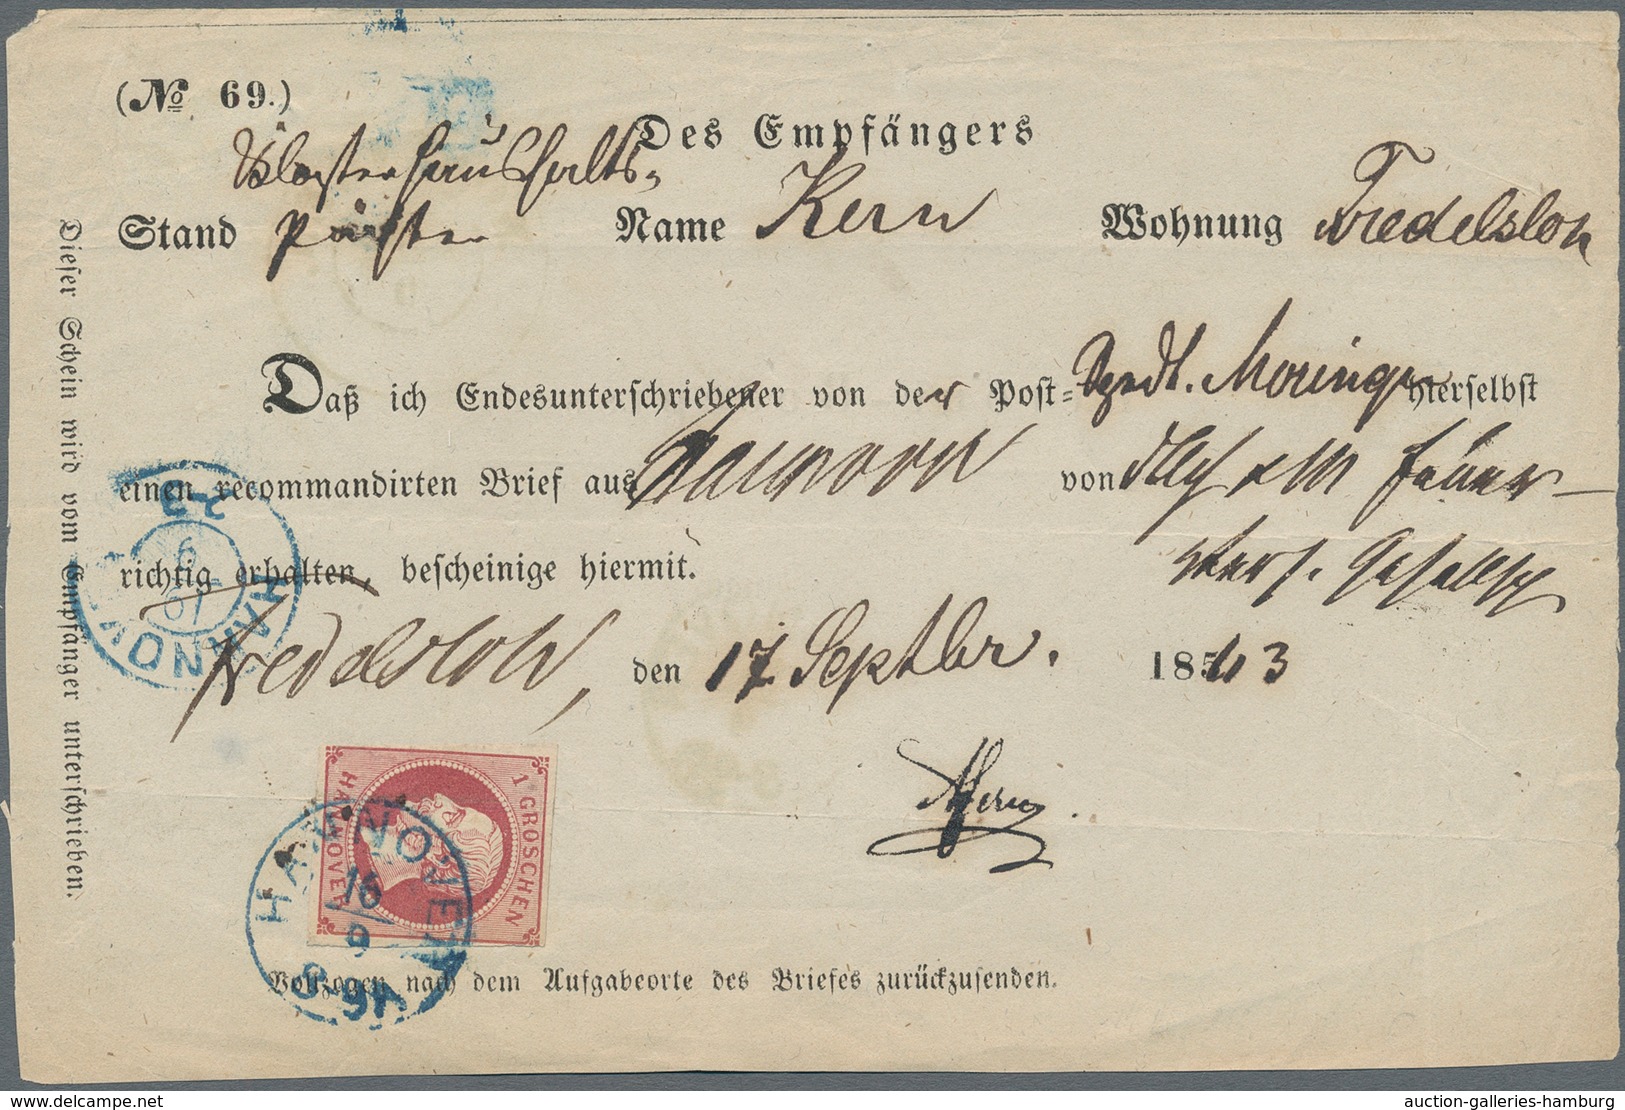 (No 69.)
Des Empfängers
Klosterhaushalts-
Stand Pächter Name Kern Wohnung Fredelsloh
Daß ich Endesunterschriebener von der Post-Spedt. Moringen hierselbst
einen recommandirten Brief aus Hannover von
richtig erhalten, bescheinige hiermit.
Fredelsloh, den 17 Septbr. 1863
Kern
Vollzogen nach dem Aufgabeorte des Briefes zurückzusenden.
Dieser Schein wird vom Empfänger unterschrieben.
HANNOVER
16
9
1 GROSCHEN
HANNOVER
www.delcampe.net
auction-galleries-hamburg